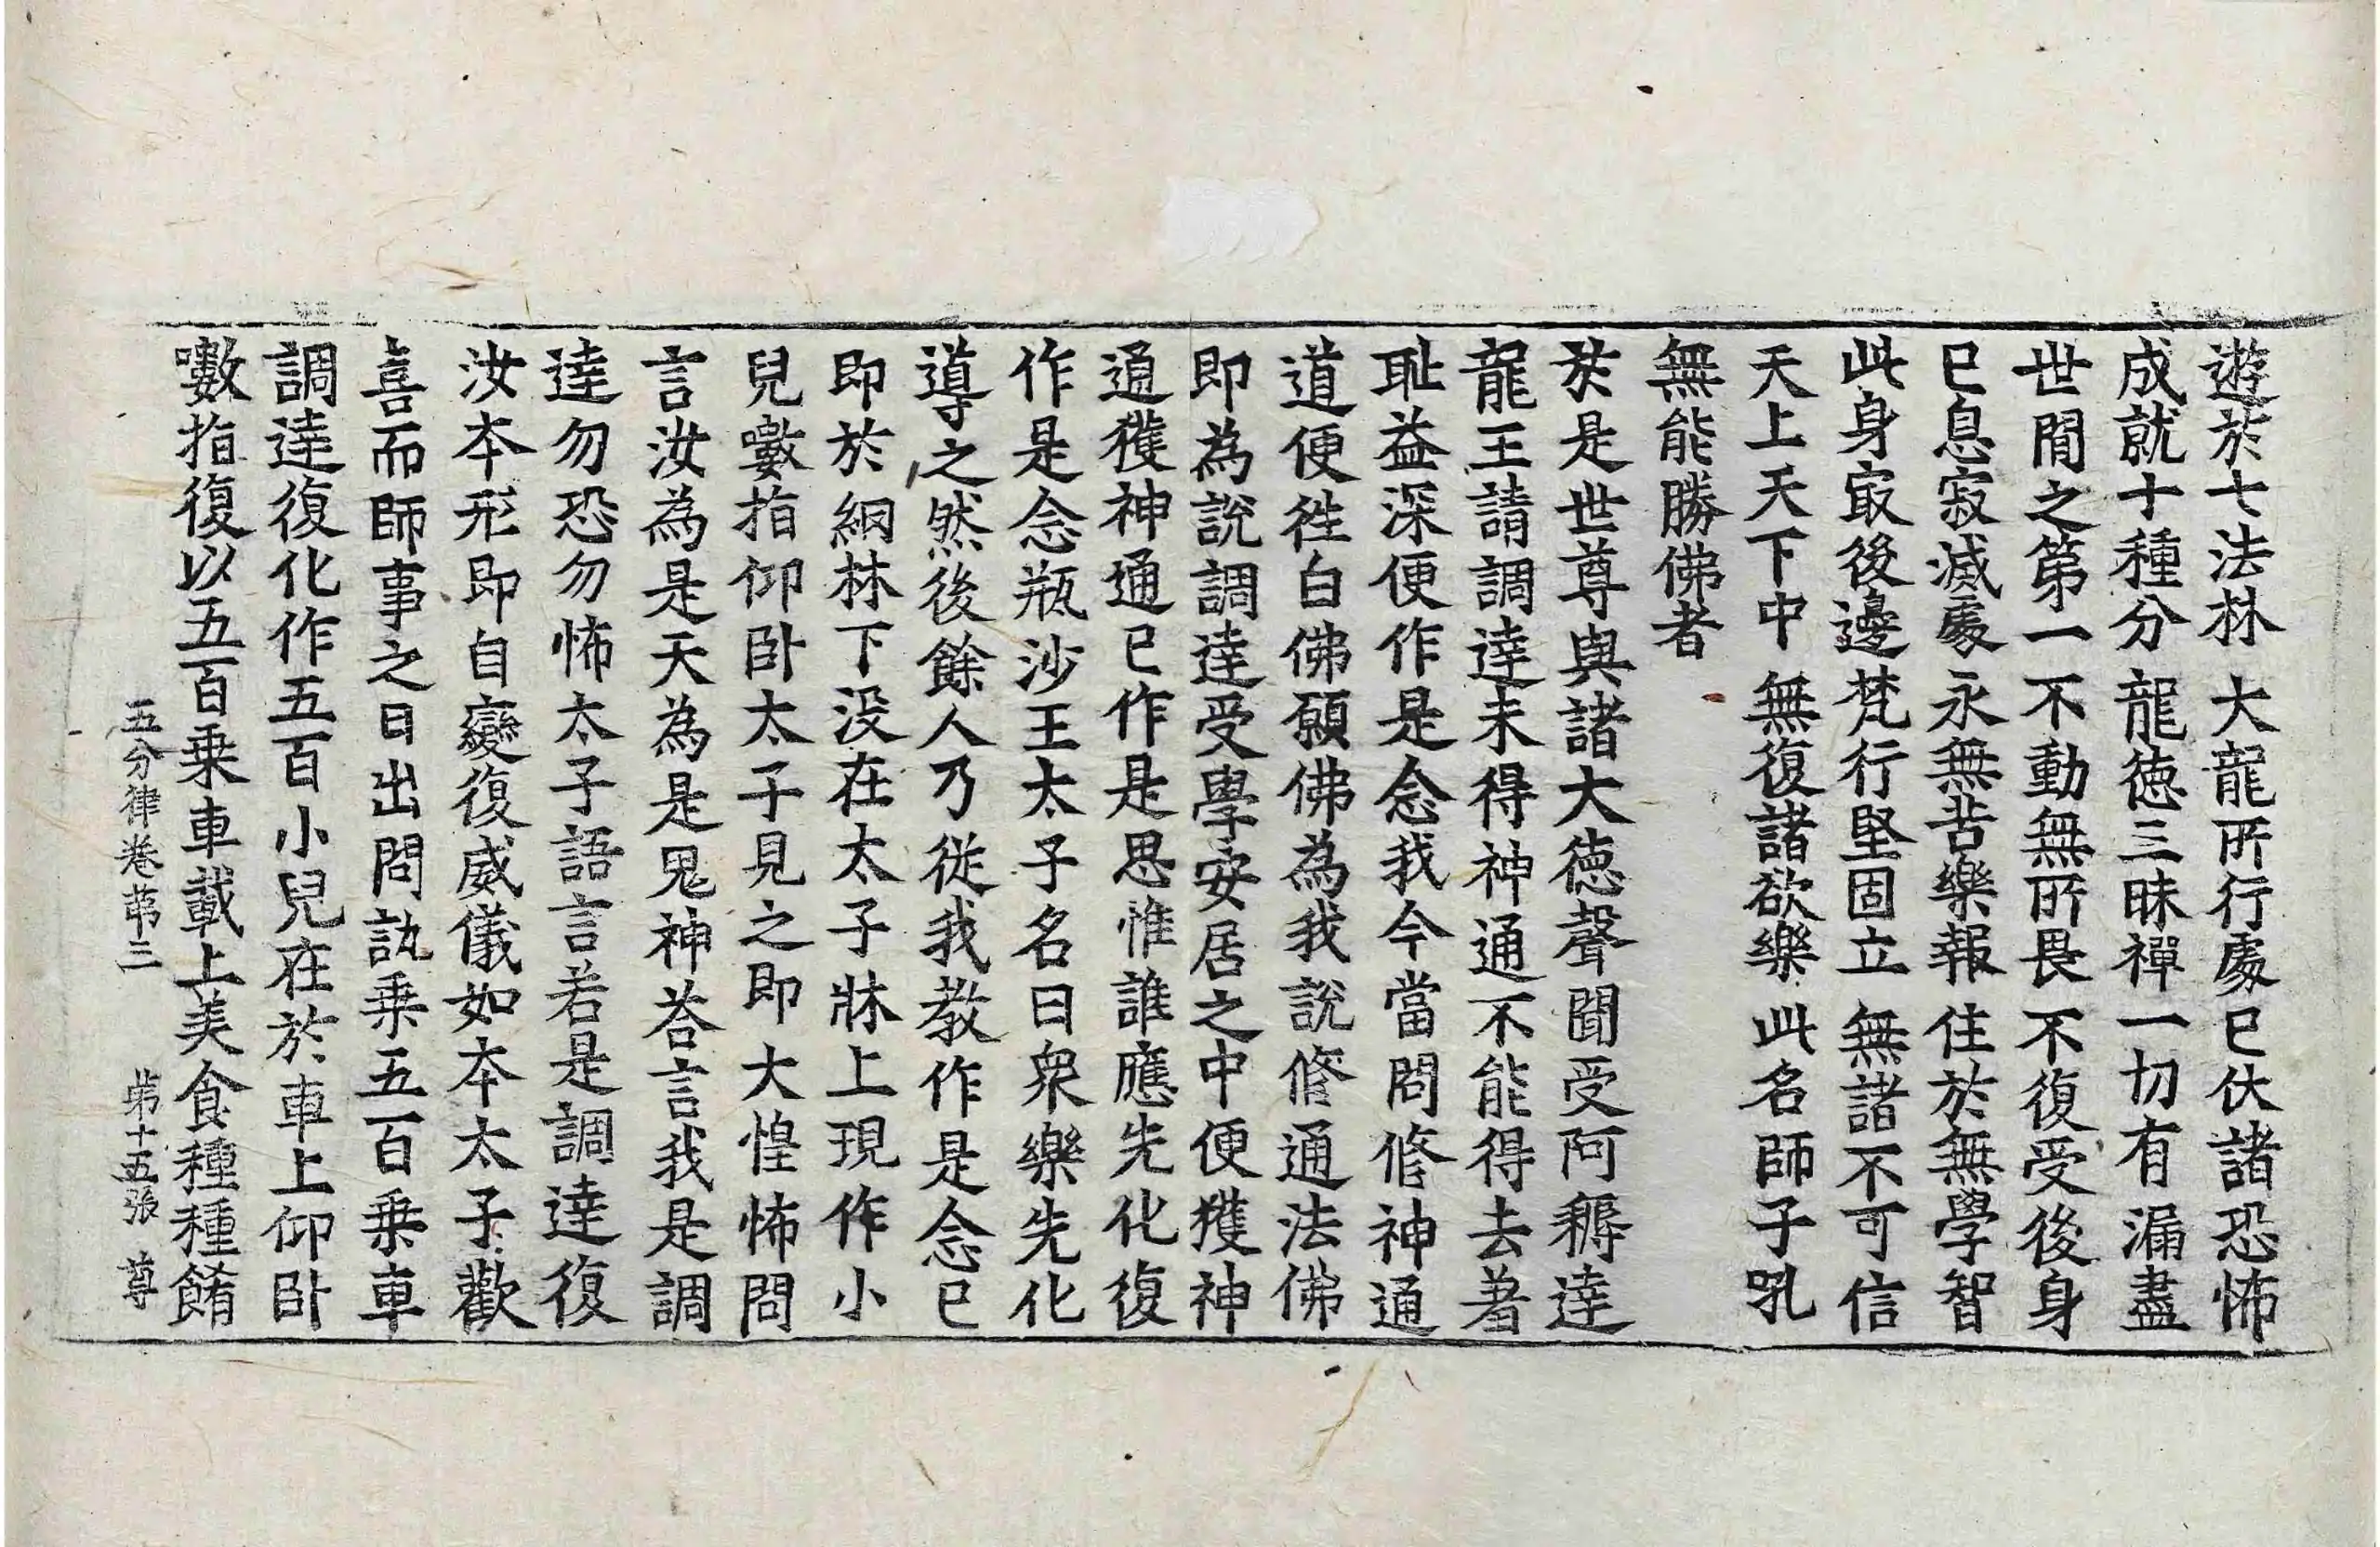 遊於七法林 大龍所行處 已伏諸恐怖
成就十種分 龍德三昧禪 一切有漏盡
世間之第一 不動無所畏 不復受後身
已息寂滅處 永無苦樂報 住於無學智
此身㝡後邊 梵行堅固立 無諸不可信
天上天下中 無復諸欲樂 此名師子吼
無能勝佛者
於是世尊與諸大德聲聞受阿耨達
龍王請調達未得神通不能得去著
耻益深便作是念我今當問修神通
道便往白佛願佛為我說修通法佛
即為說調達受學安居之中便獲神
通獲神通已作是思惟誰應先化復
作是念瓶沙王太子名曰衆樂先化
導之然後餘人乃從我教作是念已
即於綱林下没在太子牀上現作小
兒㘉指仰卧太子見之即大惶怖問
言汝為是天為是鬼神荅言我是調
達勿恐勿怖太子語言若是調達復
汝本形即自變復威儀如本太子歡
喜而師事之日出問訊乗五百乗車
調達復化作五百小兒在於車上仰卧
㘉指復以五百乗車載上美食種種餚
五分律卷第三 第十五張 尊